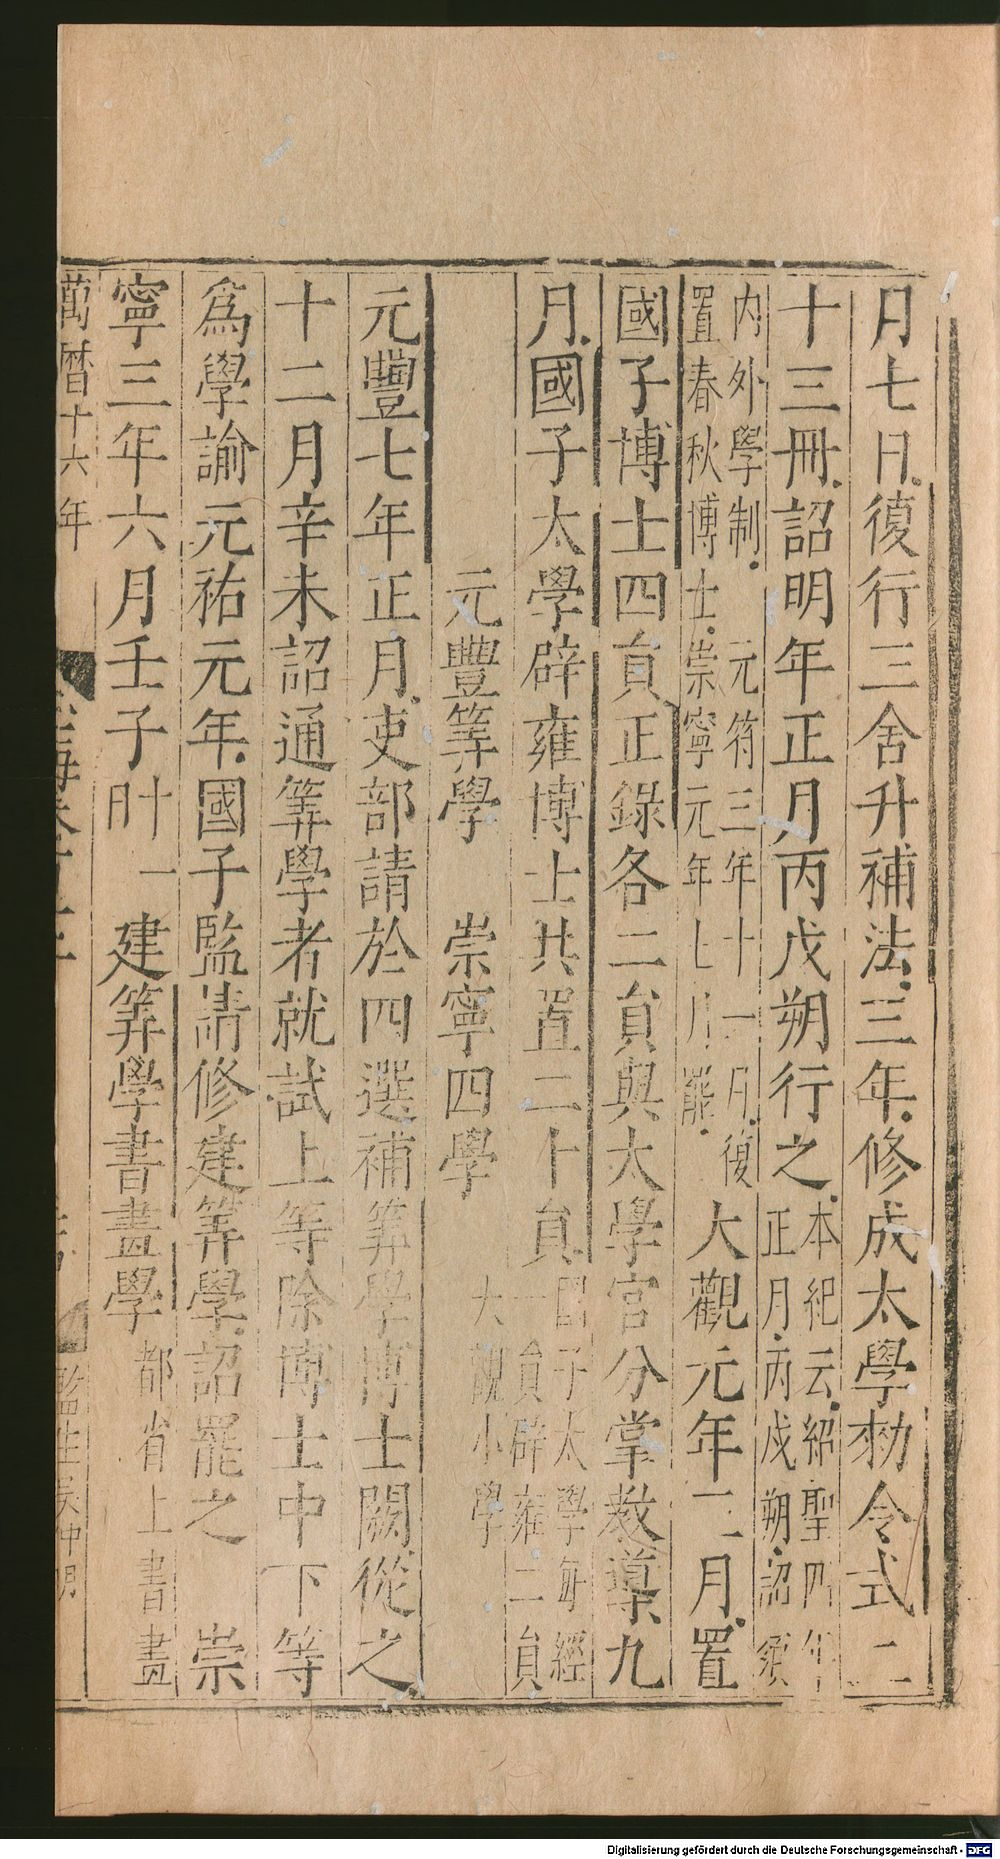 月七日復行三舍升補法三年修成太學勑令式二
十三冊詔明年正月丙戊朔行之本紀云紹聖四年
正月丙戊朔詔須
內外學制元符三年十一月復
置春秋博士崇寧元年七月罷大觀元年二月置
國子博士四員正錄各二員與太學宮分掌教導九
月國子太學辟雍博士共置二十員國子太學每經
一員辟雍二員
元豐筭學 崇寧四學 大觀小學
元豐七年正月吏部請於四選補筭學博士闕從之
十二月辛未詔通筭學者就試上等除博士中下等
為學諭元祐元年國子監請修建筭學詔罷之 崇
寧三年六月壬子 建筭學書畫學都省上書畫
萬曆十六年 監生吳仲明
Digitalisierung gefördert durch die Deutsche Forschungsgemeinschaft - DFG